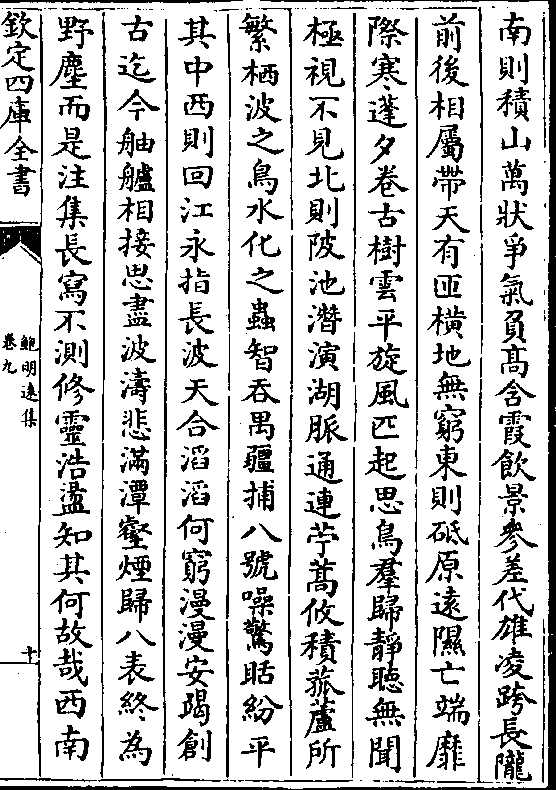 南則積山萬狀爭氣負髙含霞飲景參差代雄凌跨長隴
前後相屬帶天有匝橫地無窮東則砥原遠隰亡端靡
際寒蓬夕卷古樹雲平旋風四起思鳥羣歸靜聽無聞
極視不見北則陂池潛演湖脈通連苧蒿攸積菰蘆所
繁栖波之鳥水化之蟲智吞愚疆捕小號噪驚聒紛乎
其中西則回江永指長波天合滔滔何窮漫漫安竭創
古迄今舳艫相接思盡波濤悲滿潭壑煙歸八表終為
野塵而是注集長寫不測修靈浩盪知其何故哉西南
欽定四庫全書
鮑明遠集
卷九
十